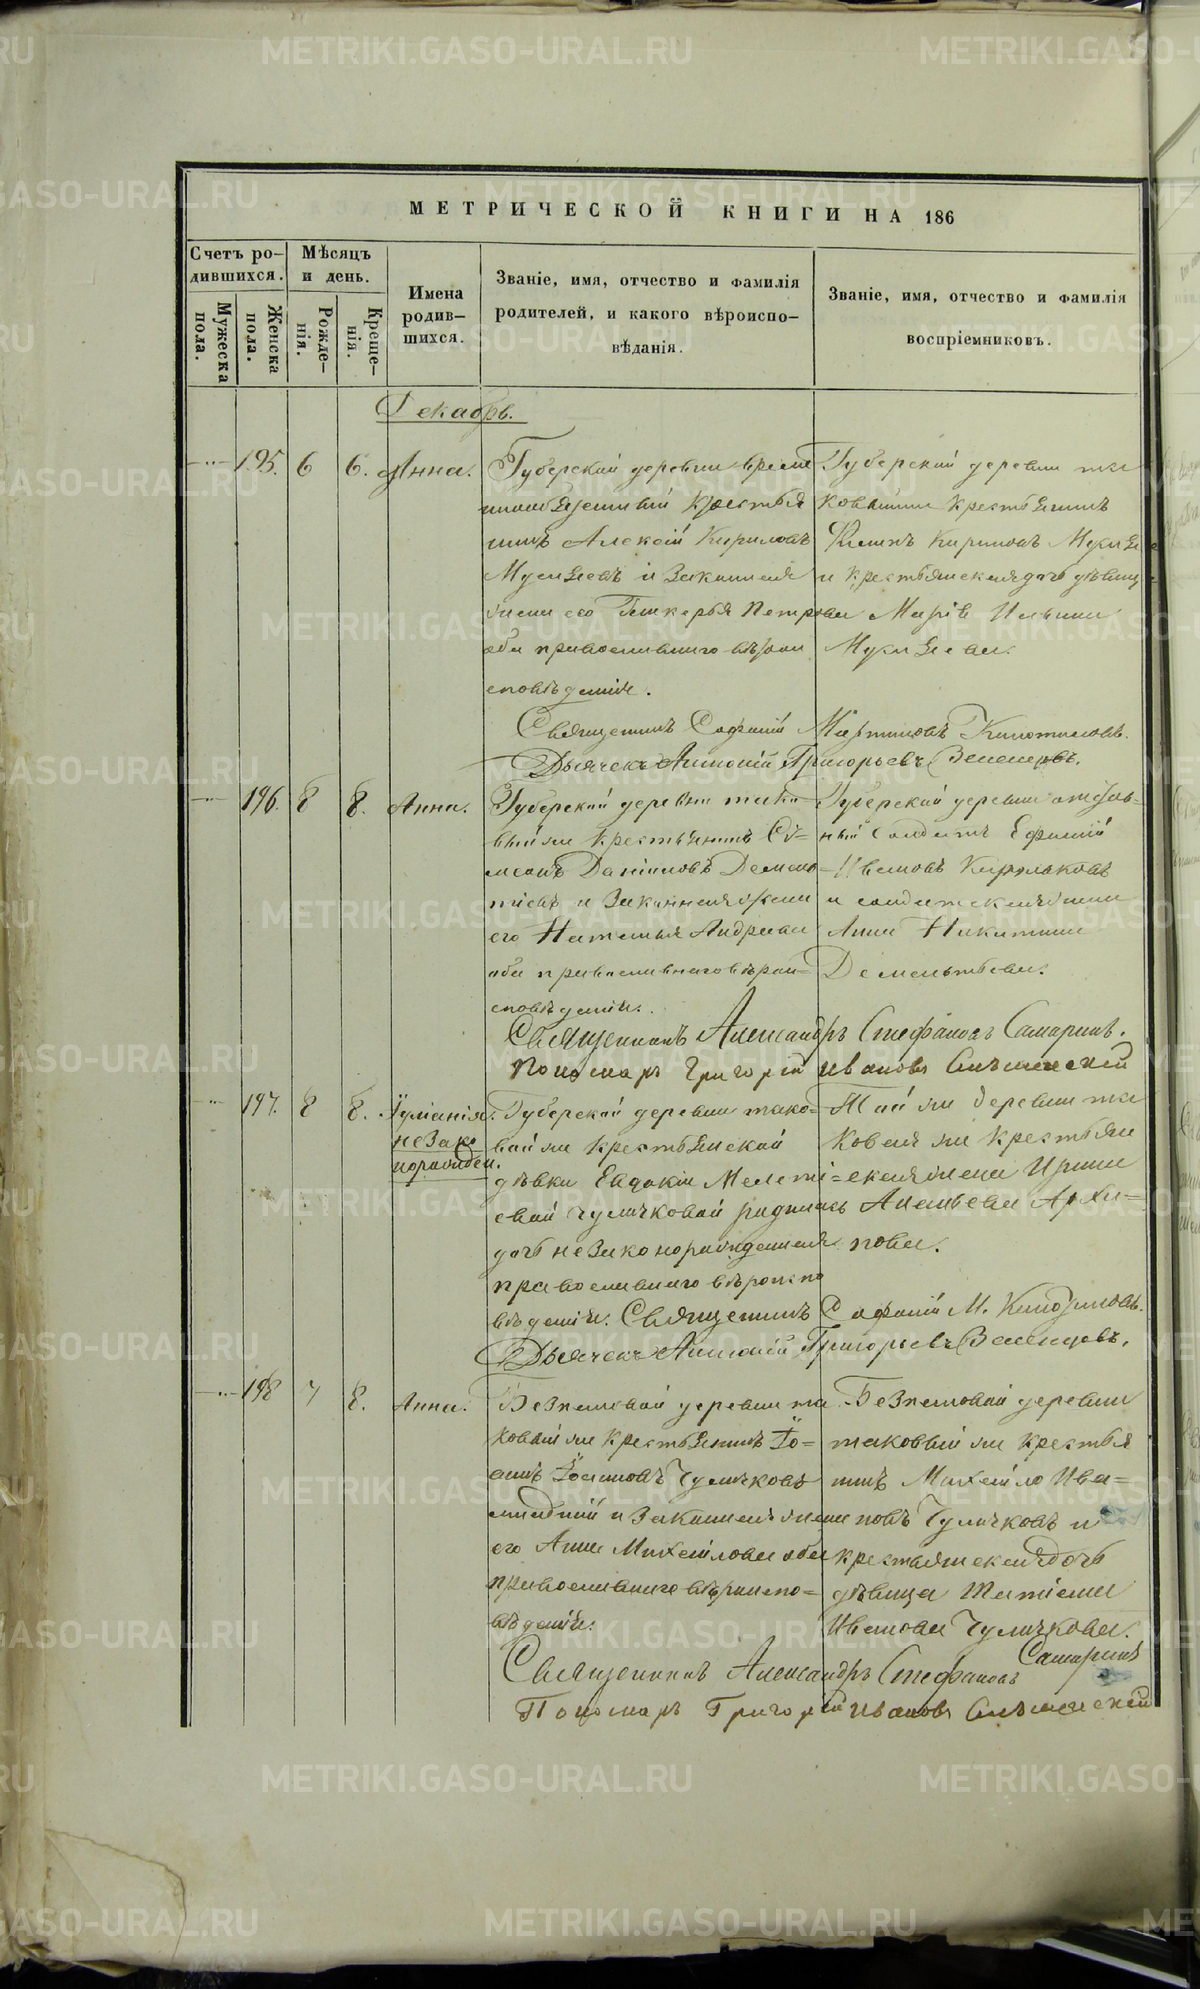 МЕТРИЧЕСКОЙ КНИГИ НА 186
Счетъ ро-
дившихся.
Мѣсяцъ
и день.
Мужеска
пола.
Женска
пола.
Рожде-
нія.
Креще-
нія.
Имена
родив-
шихся.
Званіе, имя, отчество и фамилія
родителей, и какого вѣроиспо-
вѣданія.
Званіе, имя, отчество и фамилія
воспріемниковъ.
Декабрь.
195. 6 6. Анна.
Губерской деревни време
крестья
нинъ Алексій Кириловъ
и законная
жена его Петрова
оба православнаго вѣрои
сповѣданія.
Губерской деревни та
ковыйже крестьянинъ
Филипъ Кириловъ
и крестьянская дочь дѣвица
Марія Ильина
Священникъ
Дьячекъ Антоній Григорьевъ Зеленцовъ.
196. 8 8. Анна.
Губерской деревни тако-
выйже крестьянинъ Сі-
меонъ Даніиловъ Демен-
тіевъ и законная жена
его Наталья Андреева
оба православнаго вѣрои-
сповѣданія.
Губерской деревни отстав-
ный солдатъ Ефимій
Ивановъ
и солдатская жена
Анна Никитина
Дементьева.
Священникъ Александръ Стефановъ Самаринъ.
Пономарь Григорій Ивановъ
197. 8 8. Іуліанія.
незако
норожден.
Губерской деревни тако-
войже крестьянской
дѣвки Евдокіи Мелеті-
евой Чуличковой родилась
дочь незаконорожденная
православнаго вѣроиспо
вѣданія.
Той же деревни та
коваяже крестьян
ская жена Ирина
Архи-
пова.
Священникъ
Дьячекъ Антоній Григорьевъ Зеленцовъ.
198 7 8. Анна.
деревни та
ковыйже крестьянинъ Іо-
аннъ Іоанновъ Чуличковъ
младшій и законная жена
его Анна Михайлова оба
православнаго вѣроиспо-
вѣданія.
деревни
таковыйже крестья
нинъ Михайло Ива-
новъ Чуличковъ и
крестьянская дочь
дѣвица Татіана
Иванова Чуличкова.
Священникъ Александръ Стефановъ Самаринъ
Пономарь Григорій Ивановъ
METRIKI.GASO-URAL.RU